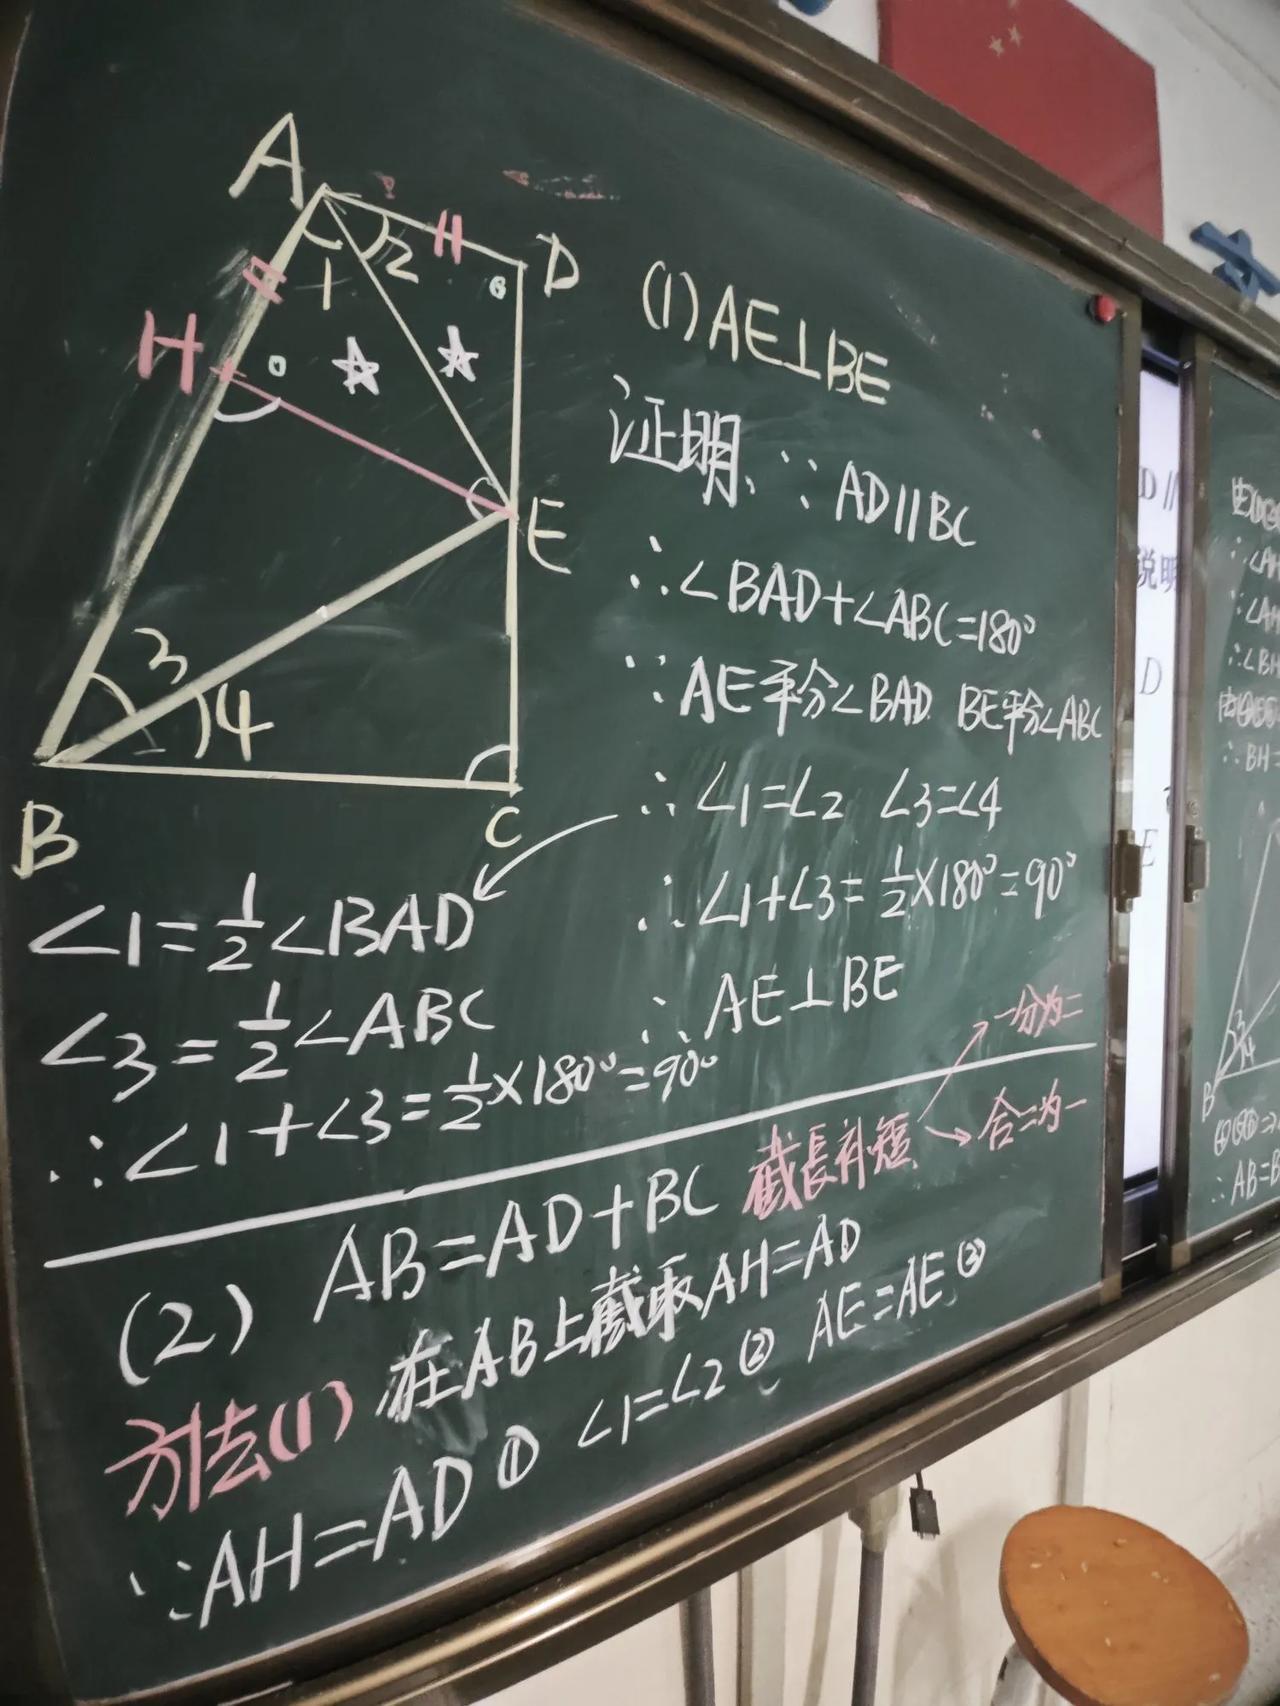 A
1
2
D
H
E
3
4
B
C
(1) AE⊥BE
证明、∵ AD∥BC
∴∠BAD+∠ABC=180°
∵ AE平分∠BAD BE平分∠ABC
∴ ∠1=∠2 ∠3=∠4
∴ ∠1+∠3=1/2×180°=90°
∴ AE⊥BE
∠1=1/2∠BAD
∠3=1/2∠ABC
∴ ∠1+∠3=1/2×180°=90°
(2) AB=AD+BC 截長补短
一分为二
合二为一
方法(1) 在AB上截取AH=AD
∵AH=AD① ∠1=∠2② AE=AE③
D∥
说明
D
E
∴∠AH
∵∠AH
∴∠BH
∴BH=
3
4
B
∴AB=B